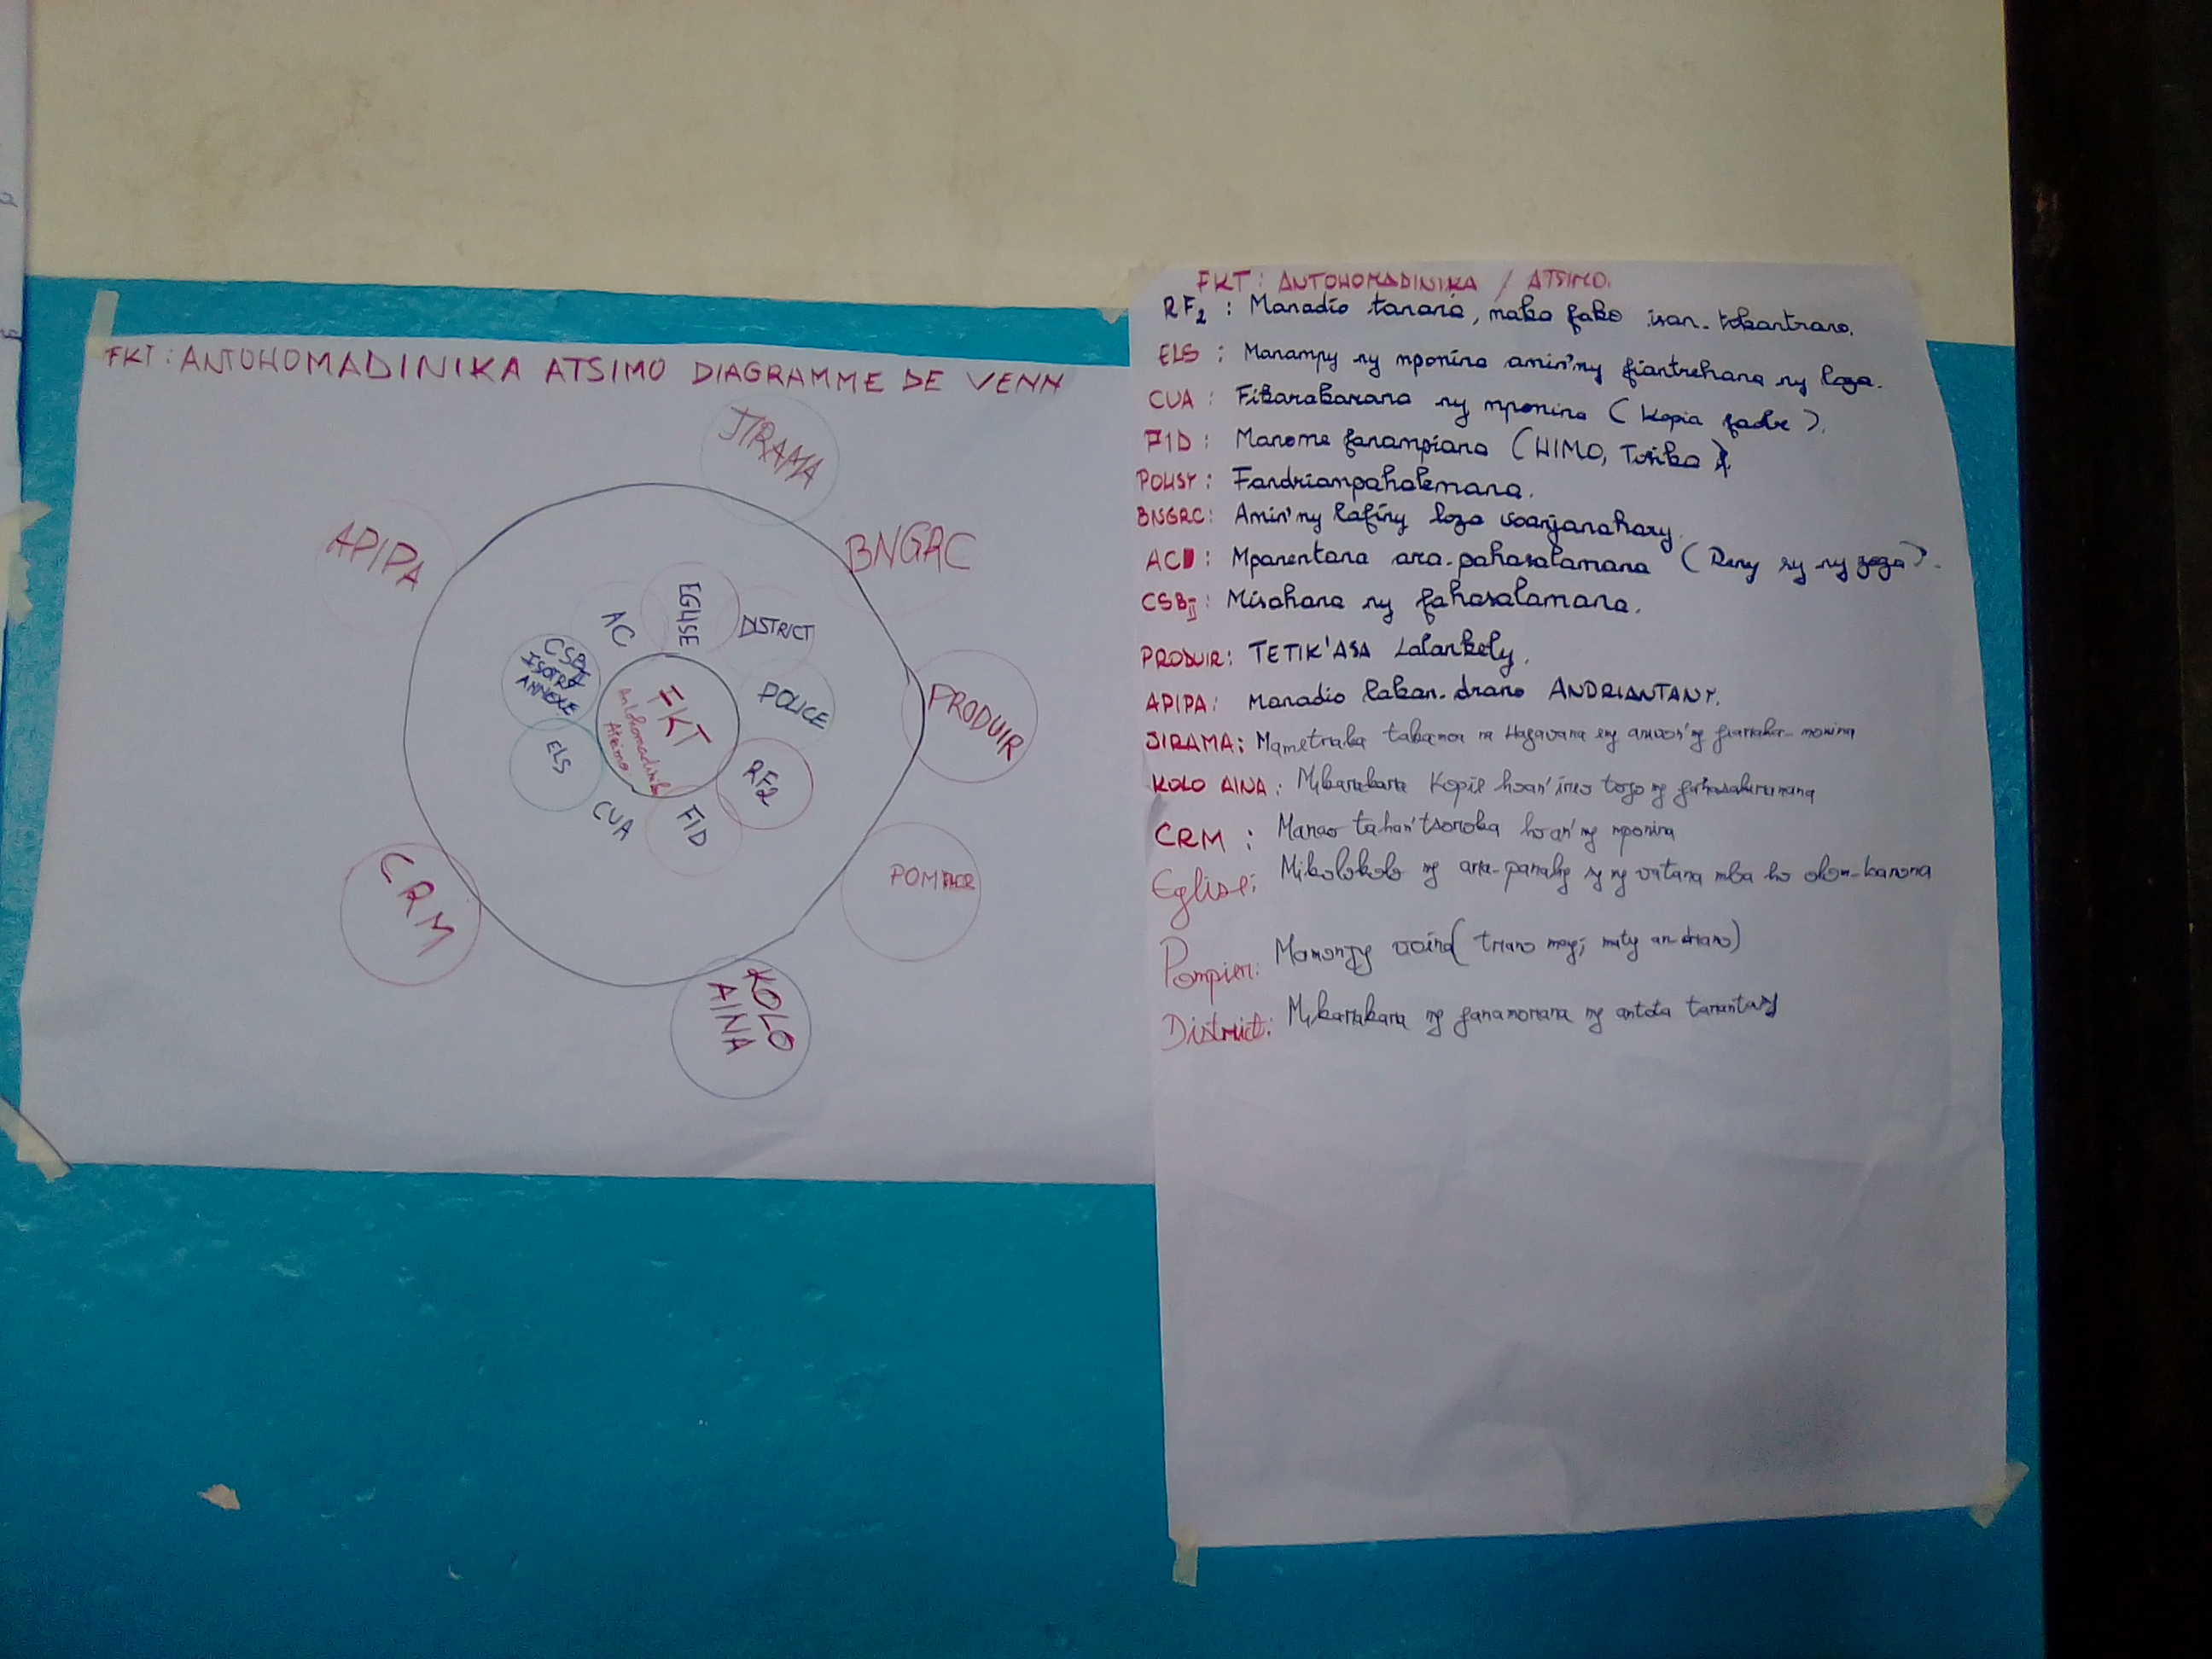 FKT : ANTOHOMADINIKA ATSIMO DIAGRAMME DE VENN
JIRAMA
APIPA
BNGRC
EGLISE
AC
DISTRICT
CSBII
ISOTRY
ANNEXE
POLICE
PRODUIR
FKT
Antohomadinika
Atsimo
ELS
RF2
CUA
FID
CRM
POMPIER
KOLO
AINA
FKT : ANTOHOMADINIKA / ATSIMO.
RF2 : Manadio tanana, naka fako isan-tokantrano.
ELS : Manampy ny mponina amin'ny fiantrehana ny loza.
CUA : Fikarakarana ny mponina ( Kopia
FID : Manome fanampiana (HIMO, Tosika
POLISY : Fandriampahalemana.
BNGRC : Amin'ny lafiny loza voanjanahary.
AC : Mpanentana ara-pahasalamana ( Reny sy ny zaza ).
CSBII : Misahana ny fahasalamana.
PRODUIR : TETIK'ASA Lalankely.
APIPA : Manadio lakan-drano ANDRIANTANY.
JIRAMA : Mametraka na Hazavana eny
KOLO AINA : Mikarakara Kopil hoan'ireo
CRM : Manao hoan'ny mponina
Eglise : Mikolokolo ny ara-panahy sy ny vatana mba ho olom-banona
Pompier : Mamonjy voina ( trano may, maty an-drano)
District : Mikarakara ny fanamorana ny antota tanantasy